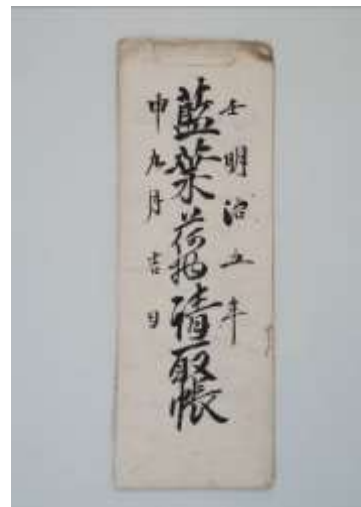 壬明治五年
藍葉荷物積取帳
申九月吉日